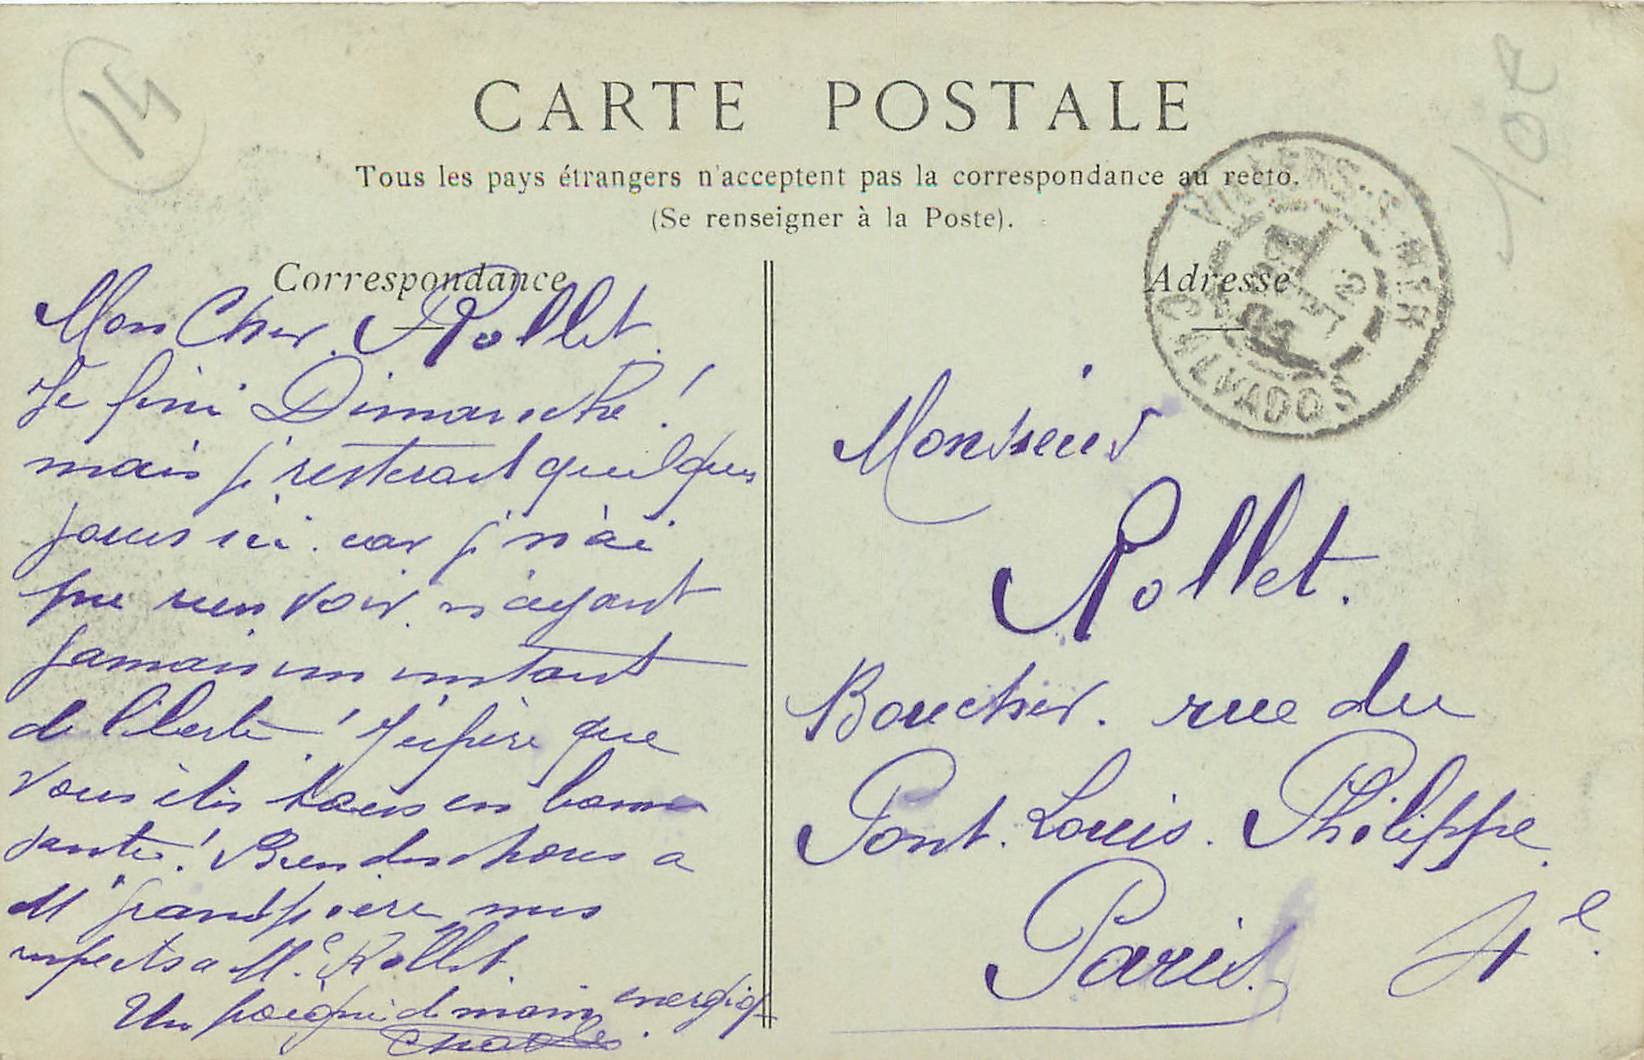 14
102
CARTE POSTALE
Tous les pays étrangers n'acceptent pas la correspondance au recto.
(Se renseigner à la Poste).
VILLERS-S-MER
CALVADOS
Correspondance
Mon Cher Rollet.
Je fini Dimanche!
mais j'resterait quelques
jours ici. car j'n'ai
pu rien voir n'ayant
jamais un instant
de liberté! J'espère que
vous êtes tous en bonne
santé! Bien des choses a
Mr grandpère, mes
respects a Me Rollet.
Un poignée d main energiq
Charles.
Adresse
Monsieur
Rollet.
Boucher. rue du
Pont. Louis. Philippe.
Paris. 4e.